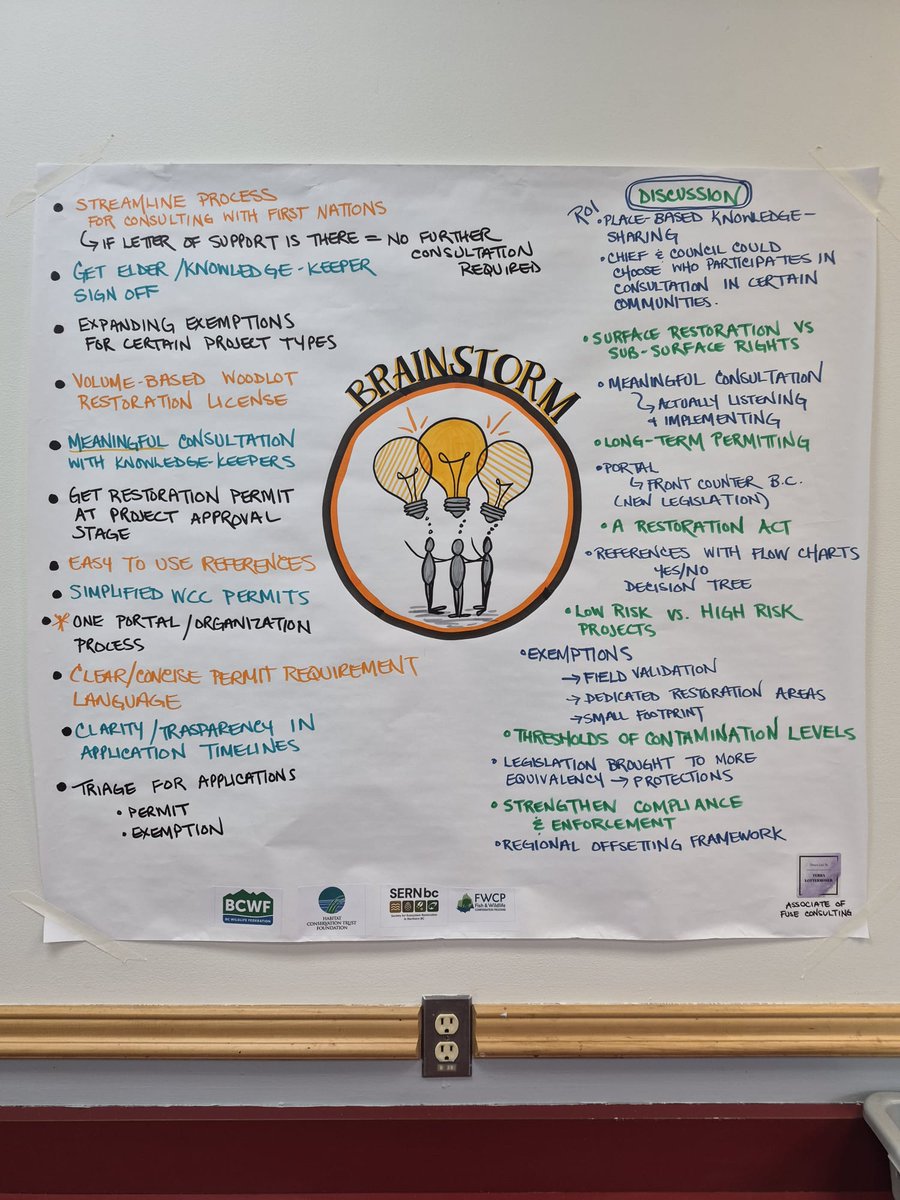 • STREAMLINE PROCESS
FOR CONSULTING WITH FIRST NATIONS
↳ IF LETTER OF SUPPORT IS THERE = NO FURTHER
CONSULTATION
REQUIRED
• GET ELDER/KNOWLEDGE-KEEPER
SIGN OFF
• EXPANDING EXEMPTIONS
FOR CERTAIN PROJECT TYPES
• VOLUME-BASED WOODLOT
RESTORATION LICENSE
• MEANINGFUL CONSULTATION
WITH KNOWLEDGE-KEEPERS
• GET RESTORATION PERMIT
AT PROJECT APPROVAL
STAGE
• EASY TO USE REFERENCES
• SIMPLIFIED WCC PERMITS
• * ONE PORTAL/ORGANIZATION
PROCESS
• CLEAR/CONCISE PERMIT REQUIREMENT
LANGUAGE
• CLARITY/TRASPARENCY IN
APPLICATION TIMELINES
• TRIAGE FOR APPLICATIONS
• PERMIT
• EXEMPTION
BRAINSTORM
DISCUSSION
ROI
• PLACE-BASED KNOWLEDGE-
SHARING
• CHIEF & COUNCIL COULD
CHOOSE WHO PARTICIPATES IN
CONSULTATION IN CERTAIN
COMMUNITIES.
• SURFACE RESTORATION VS
SUB-SURFACE RIGHTS
• MEANINGFUL CONSULTATION
↳ ACTUALLY LISTENING
& IMPLEMENTING
• LONG-TERM PERMITTING
• PORTAL
↳ FRONT COUNTER B.C.
(NEW LEGISLATION)
• A RESTORATION ACT
• REFERENCES WITH FLOW CHARTS
YES/NO
DECISION TREE
• LOW RISK VS. HIGH RISK
PROJECTS
• EXEMPTIONS
→ FIELD VALIDATION
→ DEDICATED RESTORATION AREAS
→ SMALL FOOTPRINT
• THRESHOLDS OF CONTAMINATION LEVELS
• LEGISLATION BROUGHT TO MORE
EQUIVALENCY → PROTECTIONS
• STRENGTHEN COMPLIANCE
& ENFORCEMENT
• REGIONAL OFFSETTING FRAMEWORK
ASSOCIATE OF
FUSE CONSULTING
BCWF
BC WILDLIFE FEDERATION
HABITAT
CONSERVATION TRUST
FOUNDATION
SERNbc
Society for Ecosystem Restoration
in Northern BC
FWCP
Fish & Wildlife
COMPENSATION PROGRAM